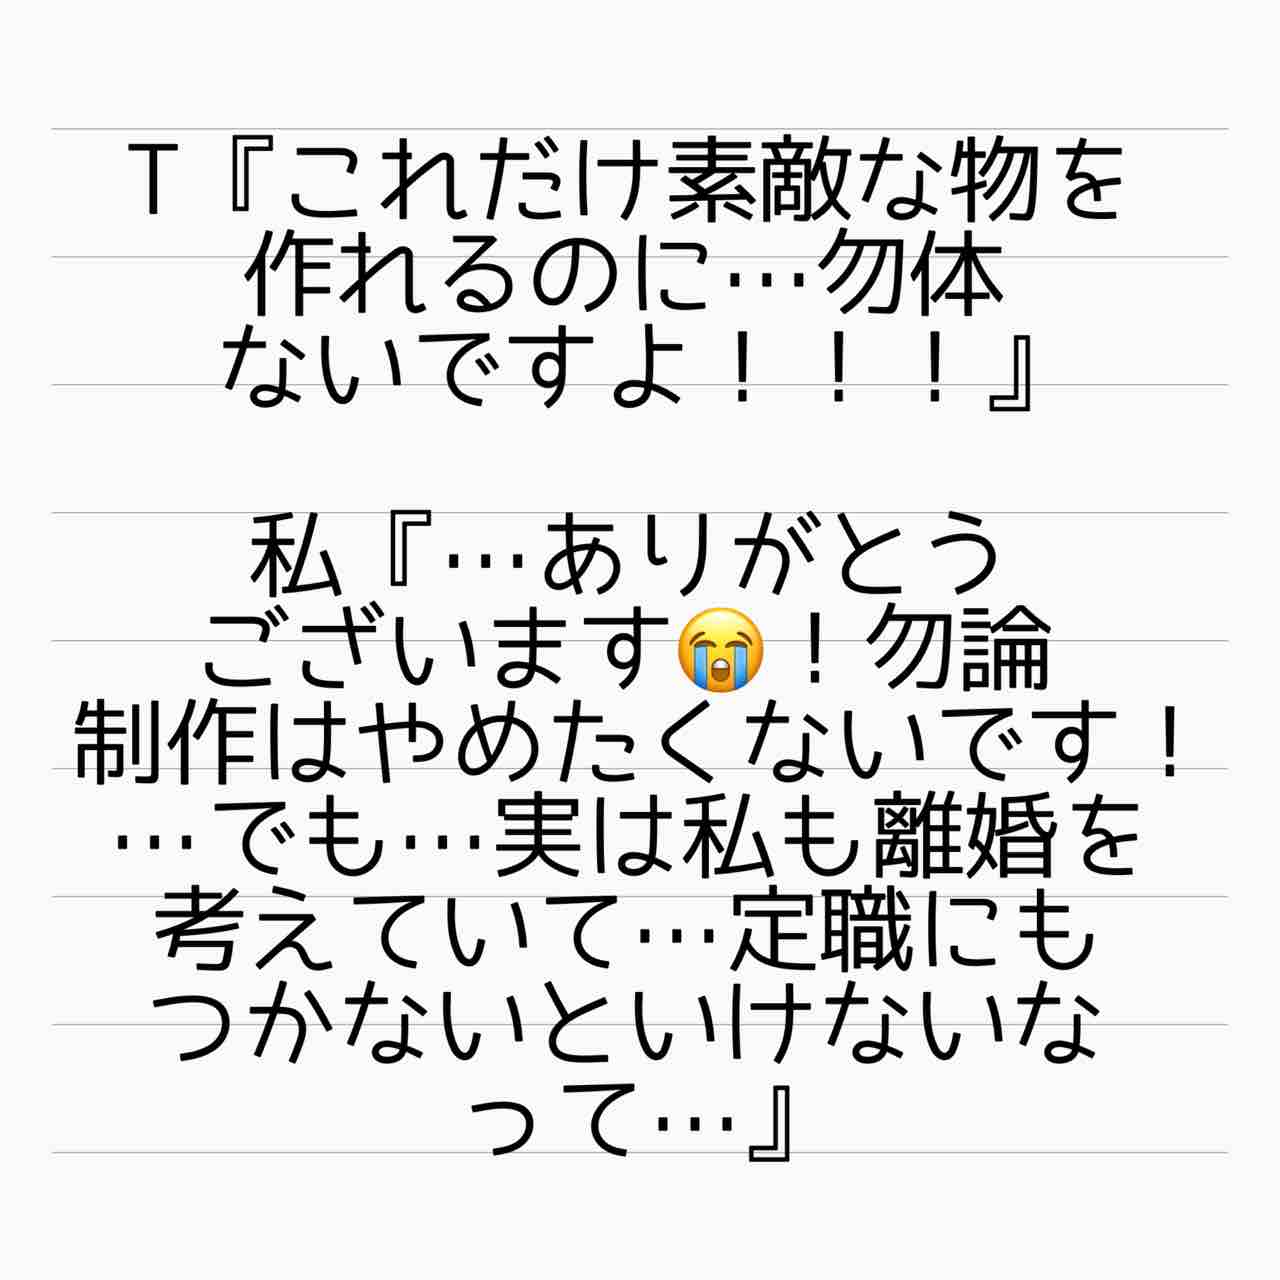 T『これだけ素敵な物を
作れるのに…勿体
ないですよ！！！』
私『…ありがとう
ございます😭！勿論
制作はやめたくないです！
…でも…実は私も離婚を
考えていて…定職にも
つかないといけないな
って…』